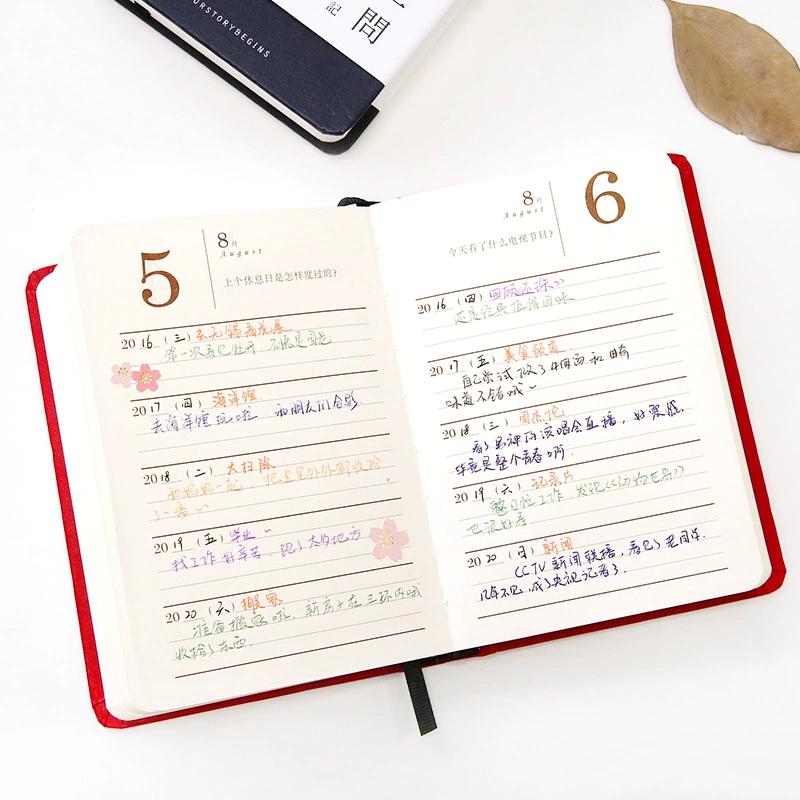 OURSTORYBEGINS
問
記
5
8月
August
上个休息日是怎样度过的?
2016 (三) 去无锡看花展
第一次看见
2017 (四) 海洋馆
去海洋馆玩啦 和朋友们合影.
2018 (二) 大扫除
和妈妈一起, 把里里外外都收拾
了一番~
2019 (五) 毕业~
找工作好辛苦, 跑了太多地方
2020 (六) 搬家
准备搬家啦, 新房子在三环内哦
收拾了东西.
6
8月
August
今天看了什么电视节目?
2016 (四)
还是经典值得回味
2017 (五) 美食频道
自己尝试做了
味道不错哦~
2018 (三) 周杰伦
看了男神的演唱会直播, 好震撼,
毕竟是整个青春啊.
2019 (六) 记录片
整日忙工作, 发现《动物世界》
也很好看.
2020 (日) 新闻
CCTV新闻联播, 看见了老同学.
几年不见, 成了央视记者了.